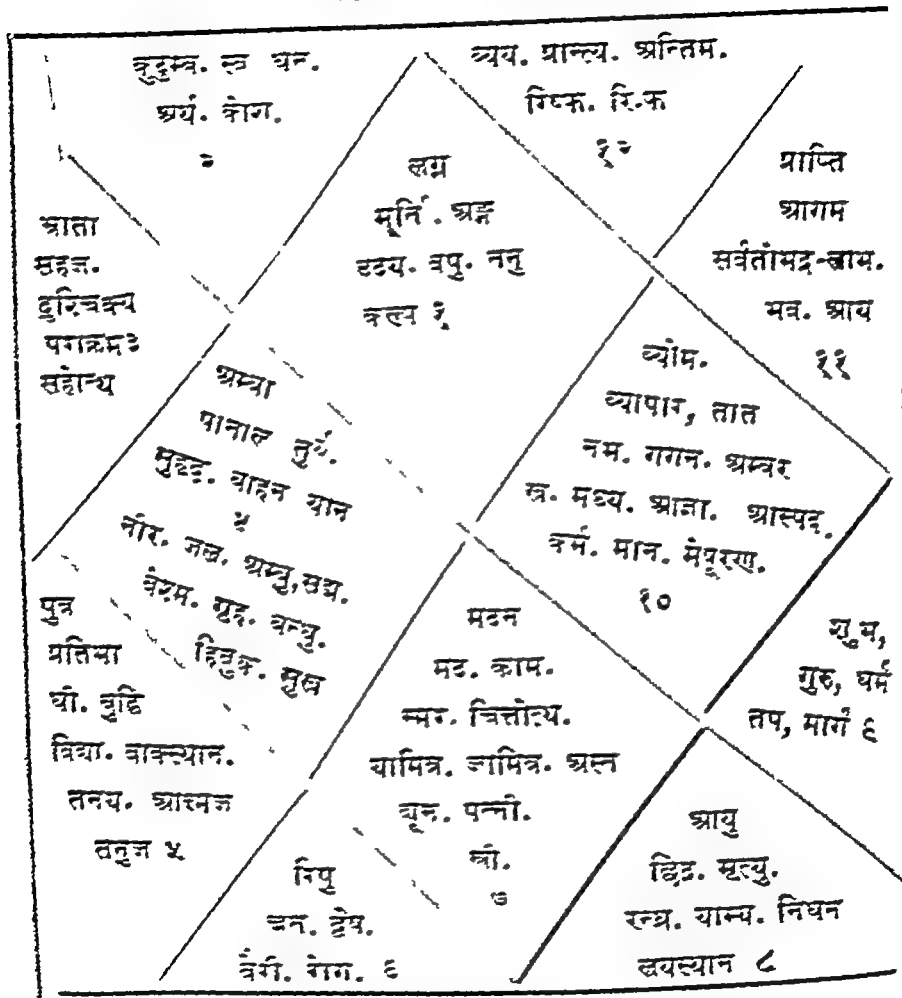 कुटुम्ब. स्व धन.
अर्थ. कोश.
२
व्यय. प्रान्त्य. अन्तिम.
रिष्फ. रि-फ
१२
लग्न
मूर्ति. अङ्ग
उदय. वपु. तनु
कल्प १
प्राप्ति
आगम
सर्वतोभद्र-लाभ.
भव. आय
११
भ्राता
सहज.
दुश्चिक्य
पराक्रम ३
सहोत्थ
अम्बा
पाताल तुर्य.
सुहृद. वाहन यान
४
नीर. जल. अम्बु, सद्म.
वेश्म. गृह. बन्धु.
हिबुक. सुख
व्योम.
व्यापार, तात
नभ. गगन. अम्बर
ख. मध्य. आज्ञा. आस्पद.
कर्म. मान. मेषूरण.
१०
पुत्र
प्रतिभा
धी. बुद्धि
विद्या. वाक्स्थान.
तनय. आत्मज
तनुज ५
मदन
मद. काम.
स्मर. चित्तोत्थ.
यामित्र. जामित्र. अस्त
द्यून. पत्नी.
स्त्री.
७
शुभ,
गुरु, धर्म
तप, मार्ग ९
रिपु
द्वेष.
वैरी. रोग. ६
आयु
छिद्र. मृत्यु.
रन्ध्र. याम्य. निधन
लयस्थान ८